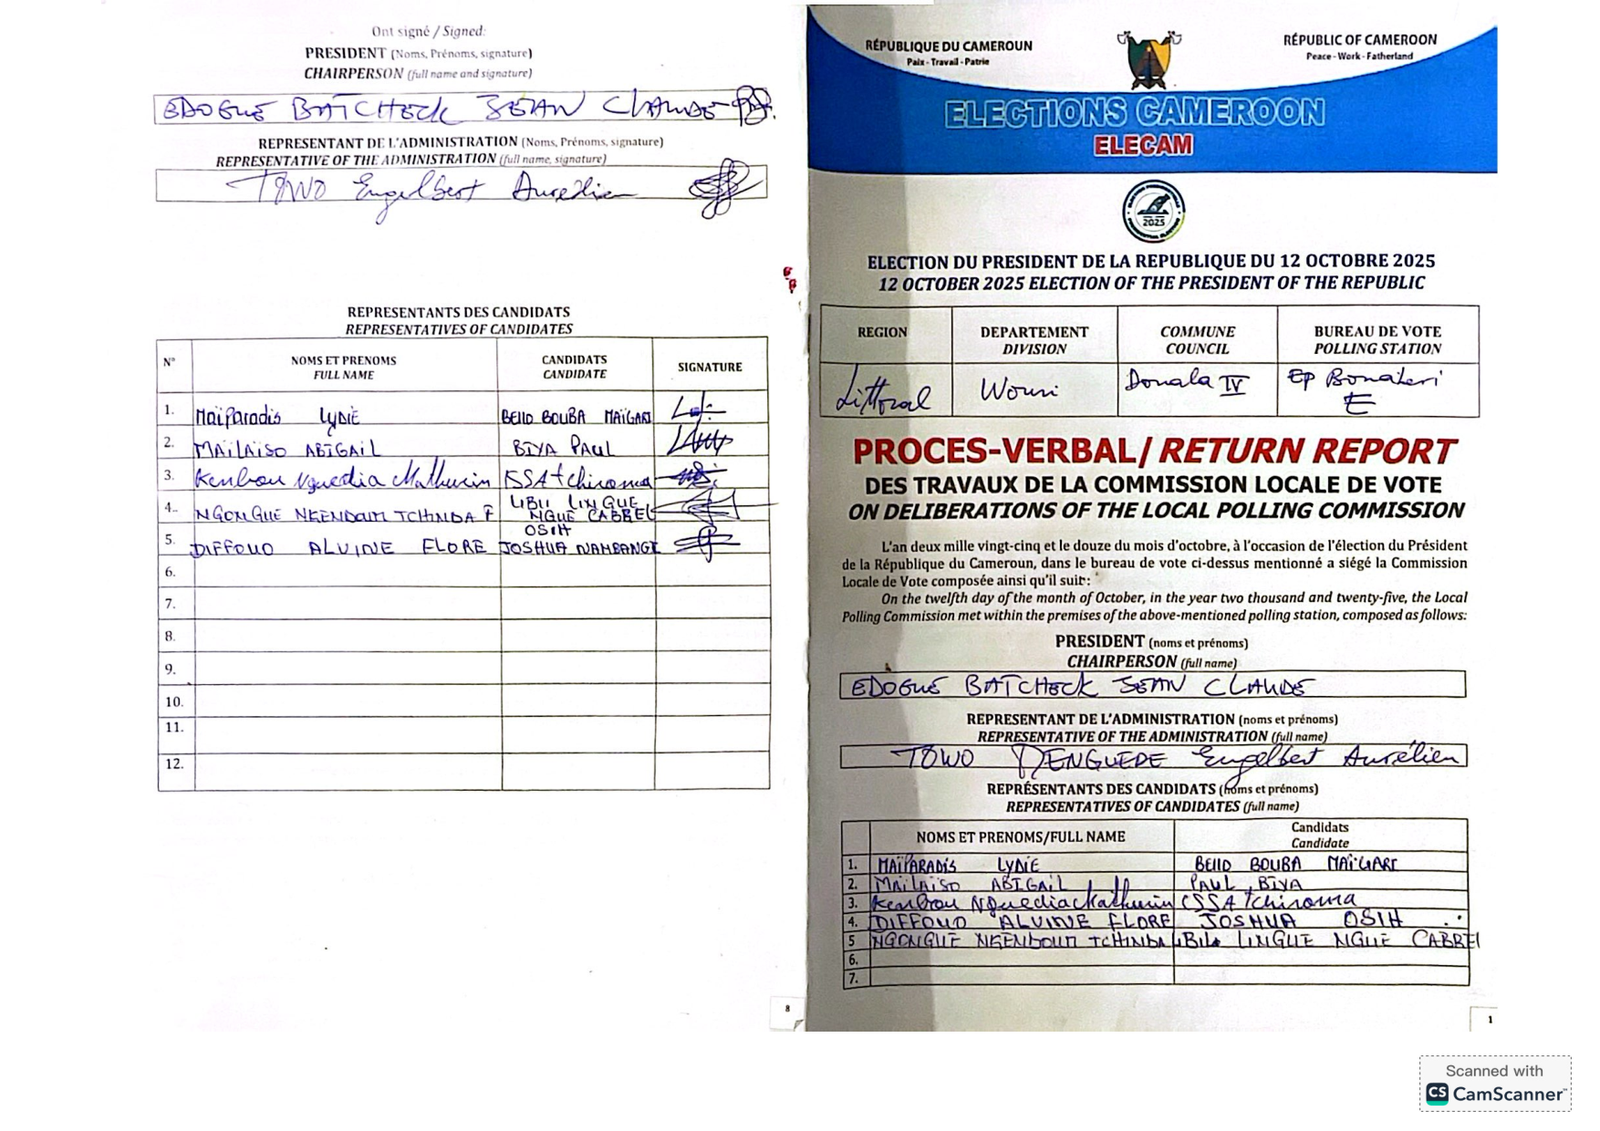 Ont signé / Signed:
PRESIDENT (Noms, Prénoms, signature)
CHAIRPERSON (full name and signature)
EDOGUE BATCHECK JEAN CLAUDE
REPRESENTANT DE L'ADMINISTRATION (Noms, Prénoms, signature)
REPRESENTATIVE OF THE ADMINISTRATION (full name, signature)
TOWO Engelbert Aurélien
REPRESENTANTS DES CANDIDATS
REPRESENTATIVES OF CANDIDATES
N° NOMS ET PRENOMS FULL NAME CANDIDATS CANDIDATE SIGNATURE
1. Maïparadis LYDIE BELLO BOUBA MAÏGARI
2. MAÏLAÏSO ABIGAIL BIYA PAUL
3. Kenbou Nguedia Mathurin ISSA tchiroma
4. NGONGUE NKENDOUM TCHINDA F LIBII LINGUE NGUE CABREL
5. DIFFOUO ALVINE FLORE OSIH JOSHUA NAMBANGI
6.
7.
8.
9.
10.
11.
12.
8
RÉPUBLIQUE DU CAMEROUN
Paix - Travail - Patrie
RÉPUBLIC OF CAMEROON
Peace - Work - Fatherland
ELECTIONS CAMEROON
ELECAM
2025
ELECTION DU PRESIDENT DE LA REPUBLIQUE DU 12 OCTOBRE 2025
12 OCTOBER 2025 ELECTION OF THE PRESIDENT OF THE REPUBLIC
REGION DEPARTEMENT DIVISION COMMUNE COUNCIL BUREAU DE VOTE POLLING STATION
Littoral Wouri Douala IV Ep Bonateri E
PROCES-VERBAL/ RETURN REPORT
DES TRAVAUX DE LA COMMISSION LOCALE DE VOTE
ON DELIBERATIONS OF THE LOCAL POLLING COMMISSION
L'an deux mille vingt-cinq et le douze du mois d'octobre, à l'occasion de l'élection du Président
de la République du Cameroun, dans le bureau de vote ci-dessus mentionné a siégé la Commission
Locale de Vote composée ainsi qu'il suit:
On the twelfth day of the month of October, in the year two thousand and twenty-five, the Local
Polling Commission met within the premises of the above-mentioned polling station, composed as follows:
PRESIDENT (noms et prénoms)
CHAIRPERSON (full name)
EDOGUE BATCHECK JEAN CLAUDE
REPRESENTANT DE L'ADMINISTRATION (noms et prénoms)
REPRESENTATIVE OF THE ADMINISTRATION (full name)
TOWO DENGUEDE Engelbert Aurélien
REPRÉSENTANTS DES CANDIDATS (noms et prénoms)
REPRESENTATIVES OF CANDIDATES (full name)
NOMS ET PRENOMS/FULL NAME Candidats Candidate
1. MAÏPARADIS LYDIE BELLO BOUBA MAÏGARI
2. MAÏLAÏSO ABIGAIL PAUL BIYA
3. Kenbou Nguedia Mathurin ISSA Tchiroma
4. DIFFOUO ALVINE FLORE JOSHUA OSIH
5 NGONGUE NKENDOUM TCHINDA LIBII LINGUE NGUE CABREL
6.
7.
1
Scanned with
CS CamScanner